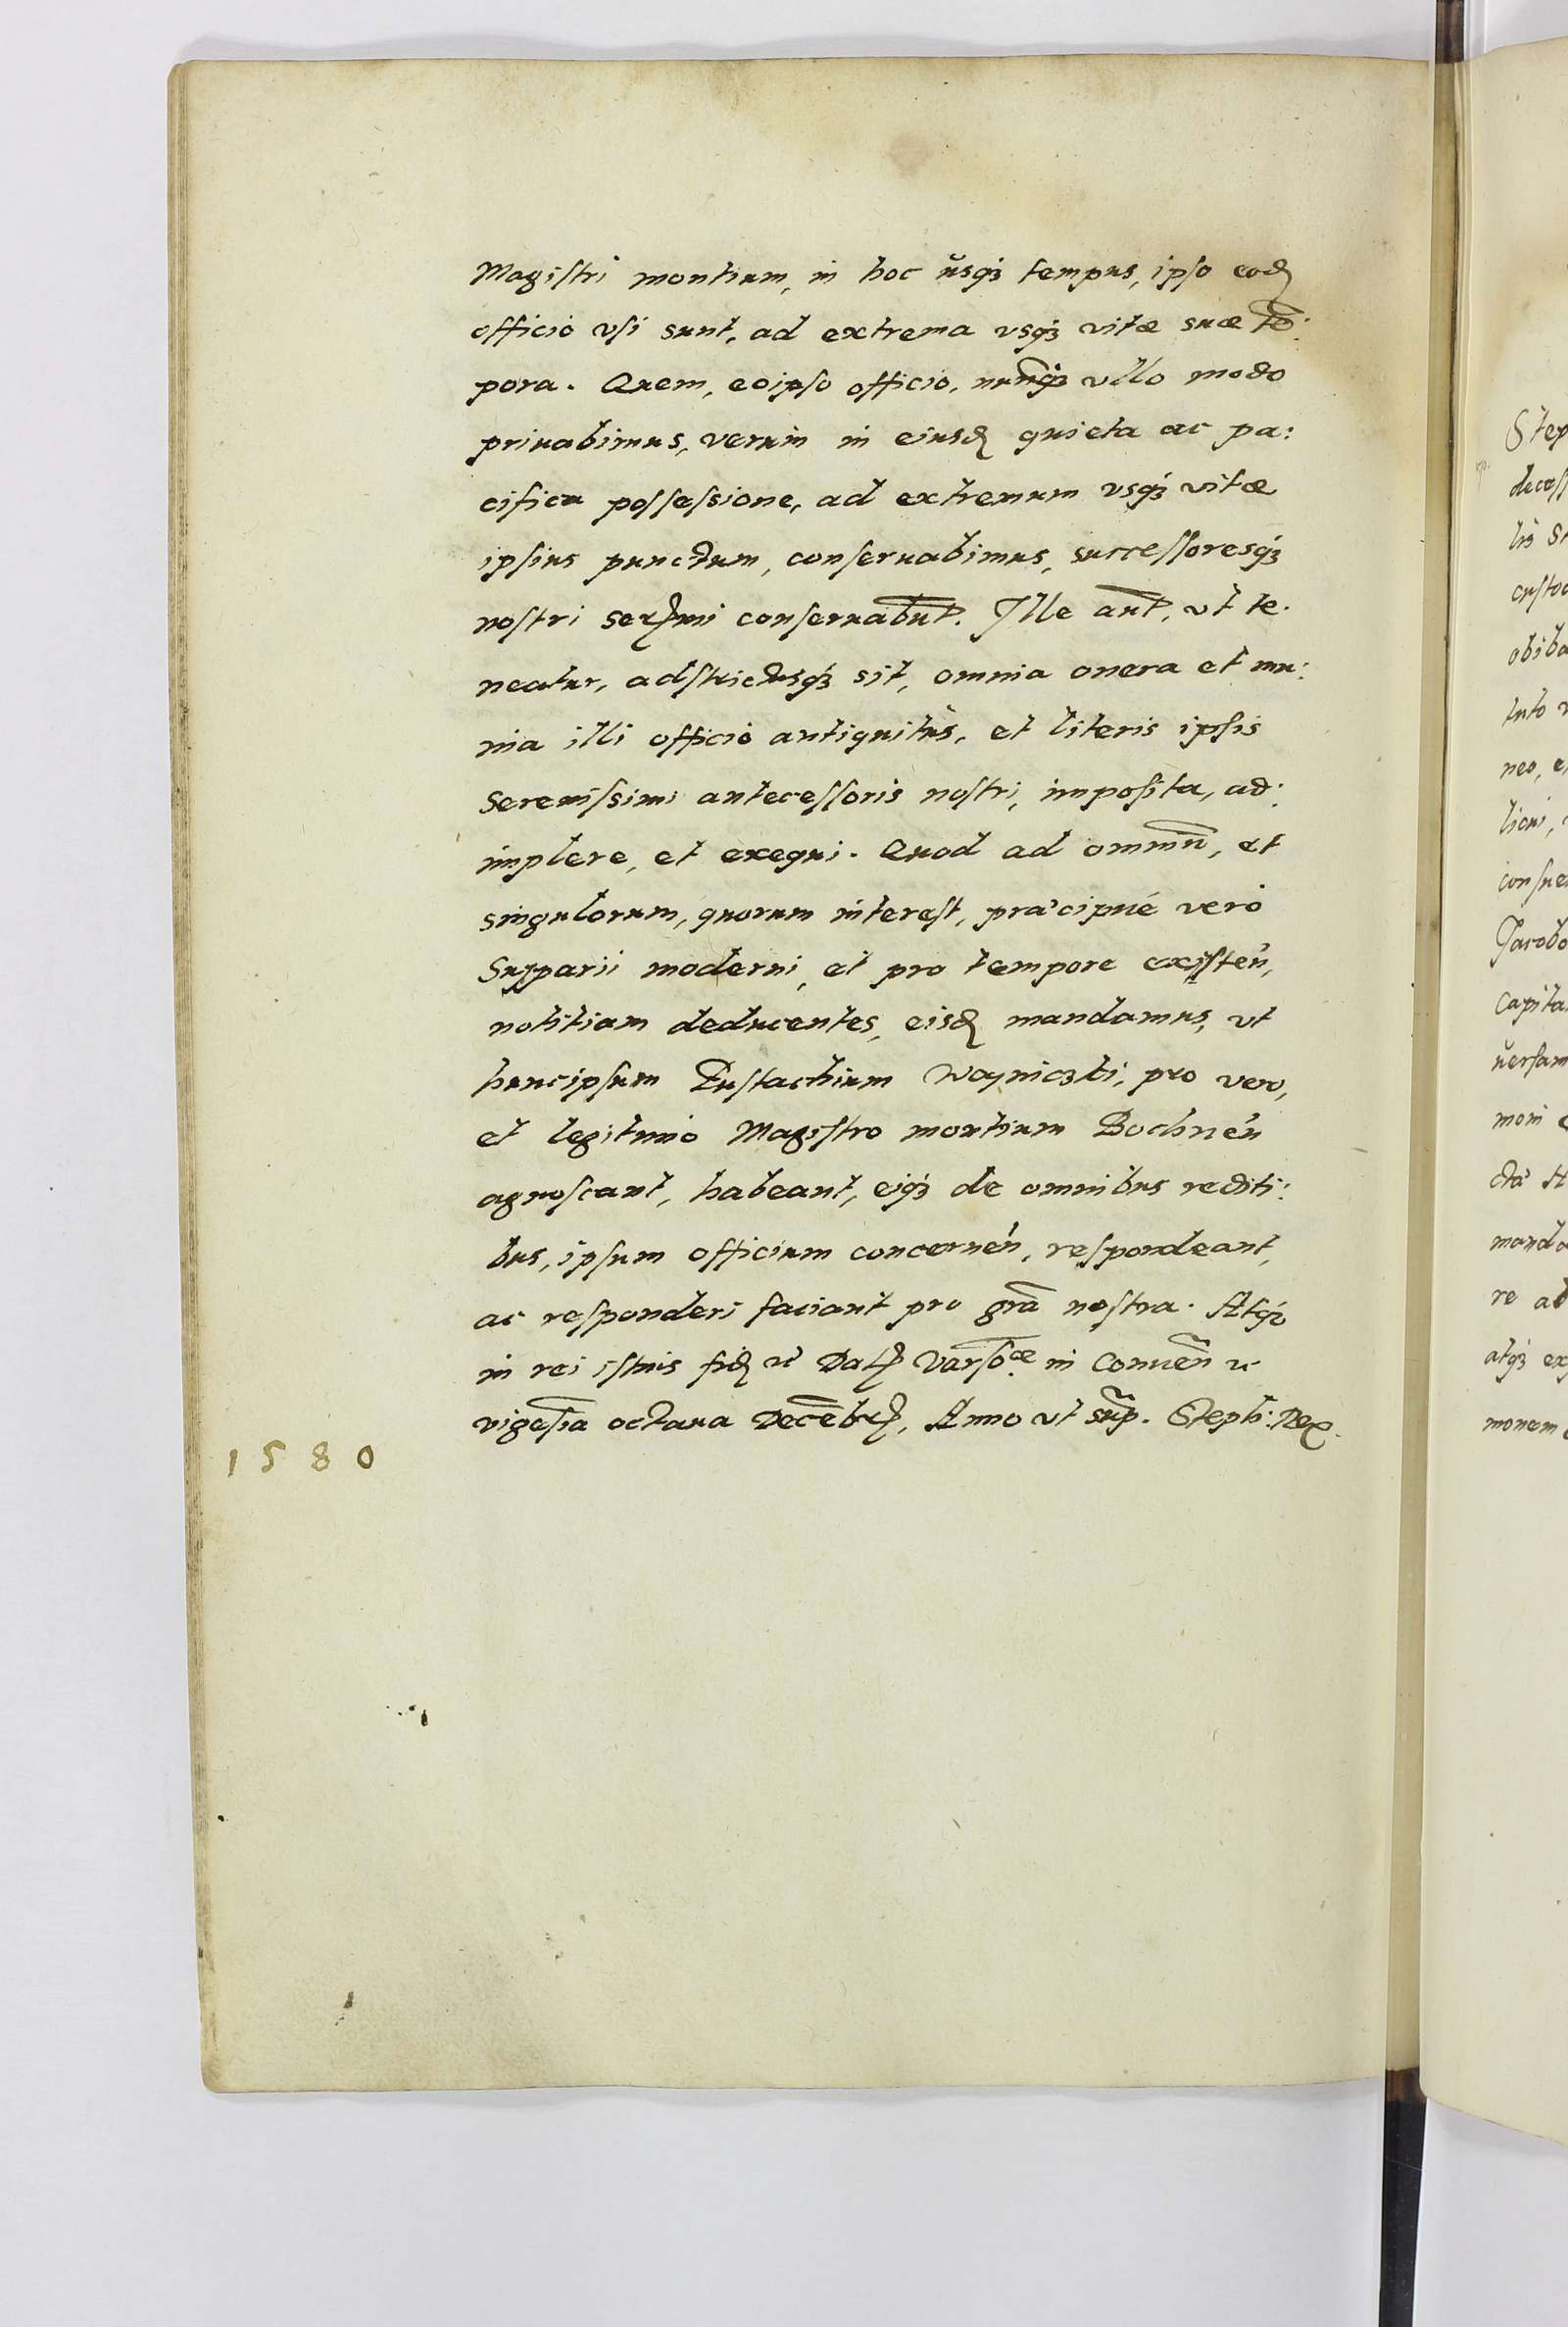 Magistri montium, in hoc usq3 tempus, ipso eod
officio vsi sunt, ad extrema vsq3 vitæ suæ tē:
pora. Quem, eoipso officio, nunq3 vllo modo
priuabimus, verum in eiusd quieta ac pa:
cifica possessione, ad extremum vsq3 vitæ
ipsius punctum, conseruabimus, successoresq3
nostri serhmi conseruabūt. Ille aūt, vt te.
neatur, adstrictusq3 sit, omnia onera et mu:
nia illi officio antiquitùs, et literis ipsis
Serenissimi antecessoris nostri, imposita, ad:
implere, et exequi. Quod ad omniū, et
singulorum, quorum interest, præcipué verò
Supparii moderni, et pro tempore existeń,
notitiam deducentes, eisd mandamus, vt
huncipsum Eustachium Woyniczki, pro vero,
et legitimo Magistro montium Bochneń
agnoscant, habeant, eiq3 de omnibus rediti:
bus, ipsum officium concerneń, respondeant,
ac responderi faciant pro grā nostra. Atq3
in rei istius fid etc Dat Varsoæ. in Conuen etc
vigesīa octaua Decēbr, Anno vt sup. Steph: Rex.
1580
Step
decess
lis S
custo
obiba
tuto
neo, e
lioni,
consue
Jacobo
capita
uersam
moni
cta
manda
re ad
atq3 ex
monem